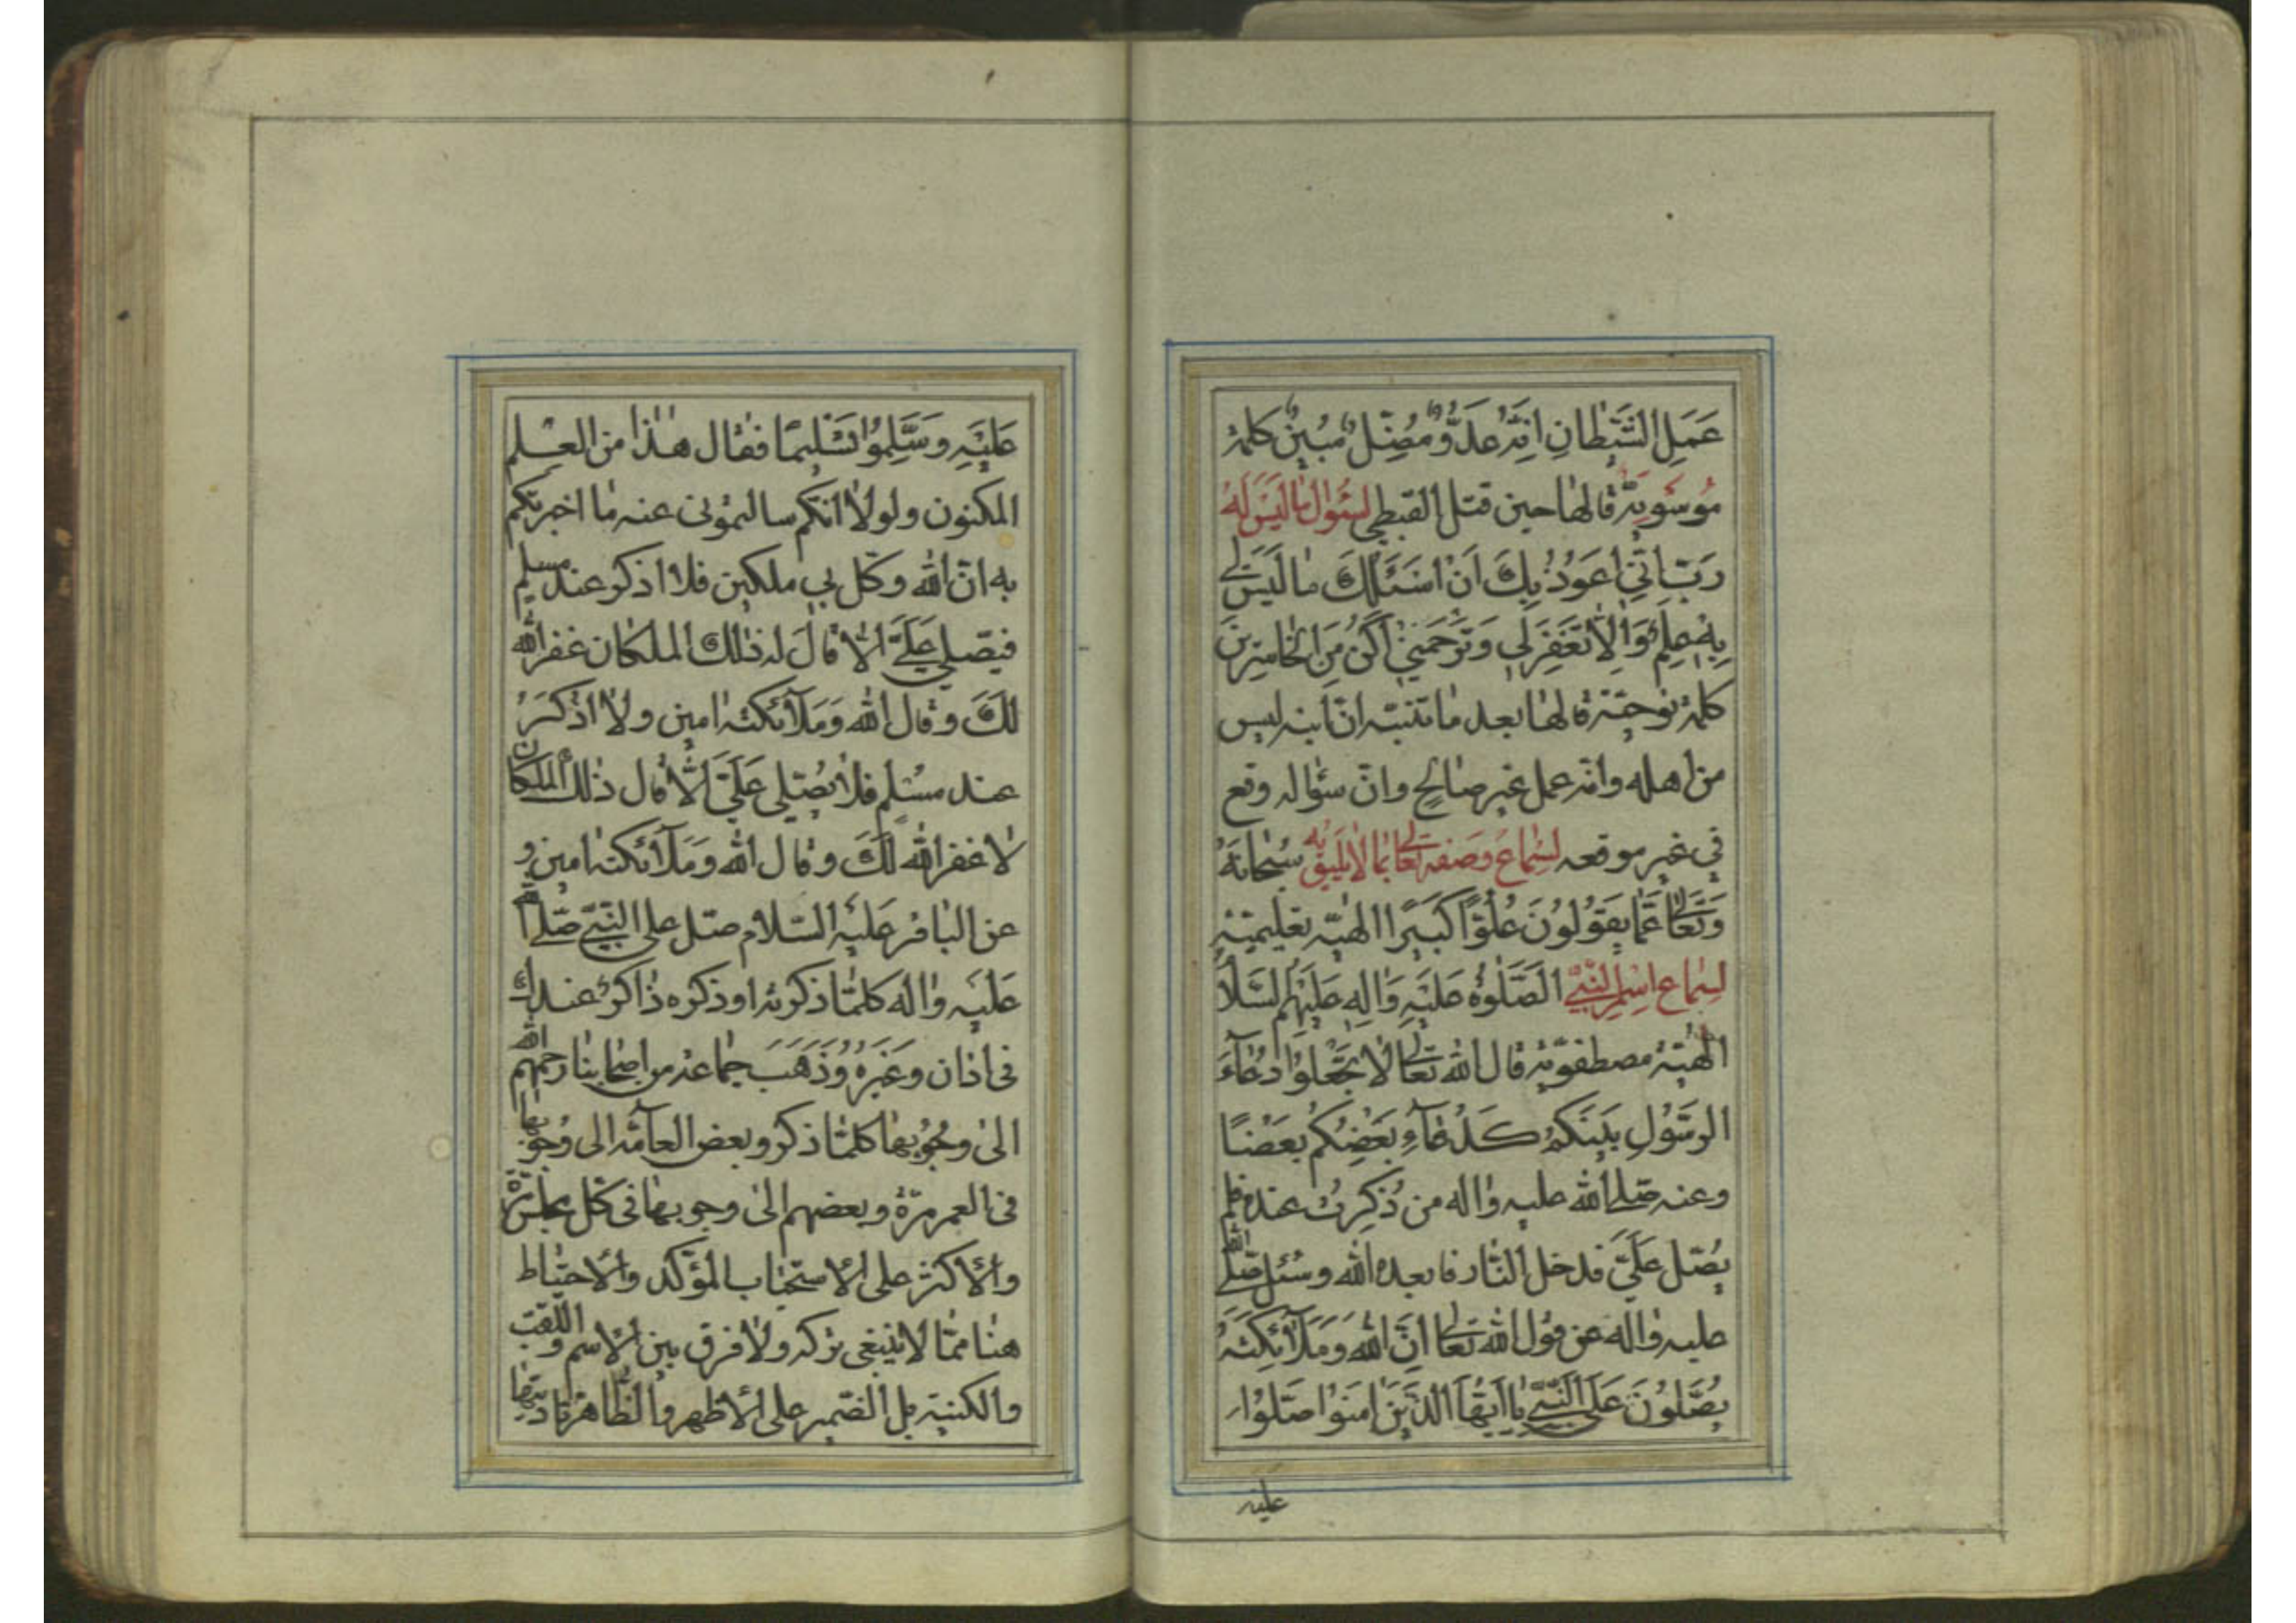 عَمَلِ الشَّيْطانِ اِنَّهُ عَدُوٌّ مُضِلٌّ مُبِينٌ كلمة
مُوسَويّة قالها حين قتل القبطي لسُؤال ما لَيْسَ لَهُ
رَبّ اِنّي اَعوُذُ بِكَ اَنْ اَسْئَلَكَ ما لَيْسَ لي
بِهِ عِلمٌ وَاِلاّ تَغْفِرْ لي وَتَرْحَمْني اَكُنْ مِنَ الخاسِرينَ
كلمة نوحيّة قالها بعد ما تنبّه انّ ابنه ليس
من اهله وانّه عمل غير صالح وانّ سؤاله وقع
في غير موقعه لسماع وَصفه تعالى بما لا يليق به سُبْحانَهُ
وَتَعالى عَمّا يَقوُلوُنَ عُلُوّاً كَبيراً الهيّة تعليميّة
لسماع اسم النَّبيّ الصَّلوٰةُ عَلَيْهِ وَالِهِ عَلَيْهِمُ السَّلامُ
الهيّة مصطفويّة قال الله تعالى لا تَجْعَلوُا دُعآءَ
الرسَّوُلِ بَيْنَكُمْ كَدُعآءِ بَعْضِكُمْ بَعْضاً
وعنه صلى الله عليه واله من ذُكِرتُ عنده فلم
يُصَلّ عَلَيَّ فدخل النّار فابعده الله وسُئل صلى الله
عليه واله عن قول الله تعالى اِنَّ اللهَ وَمَلآئِكَتَهُ
يُصَلّوُنَ عَلَى النَّبيّ يا اَيُّهَا الَّذينَ امَنوُا صَلّوُا
عليه
عَلَيْهِ وَسَلِّموُا تَسْليماً فقال هذا من العلم
المكنون ولولا انكم سالتموني عنه ما اخبرتكم
به انّ الله وكّل بي ملكين فلا اذكر عند مسلم
فيصلي عَلَيَّ الاّ قالَ له ذلك الملكان غفر الله
لكَ وقال الله وَمَلآئكته امين ولا اذكَرُ
عند مسُلم فلا يُصَلي عَلَيَّ اِلاّ قال ذلك الملكان
لا غفر الله لكَ وقال الله ومَلآئكته امين و
عن الباقر عَليْهِ السّلام صلّ على النَّبيّ صلى الله
عَليه واله كلمّا ذكرته او ذكره ذاكرٌ عندك
في اذان وغَيْرِه وَذَهَبَ جماعة من اصحابنا رحمهم الله
الى وجُوُبها كلمّا ذكر وبعض العآمّة الى وُجوبها
في العمر مرّة وبعضهم الى وجوبها في كل مجلس مرّة
والأكثر على الاستحباب المؤكّد والاحتياط
هنا ممّا لا ينبغي تركه ولا فرق بين الاسم واللّقب
والكنية بل الضّمير على الأظهر والظّاهر تادّيها